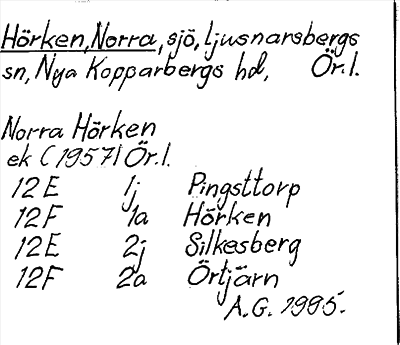 Hörken, Norra, sjö, Ljusnarsbergs
sn, Nya Kopparbergs hd, Ör.l.
Norra Hörken
ek (1957) Ör.l.
12E 1j Pingsttorp
12F 1a Hörken
12E 2j Silkesberg
12F 2a Örtjärn
A.G. 1995.